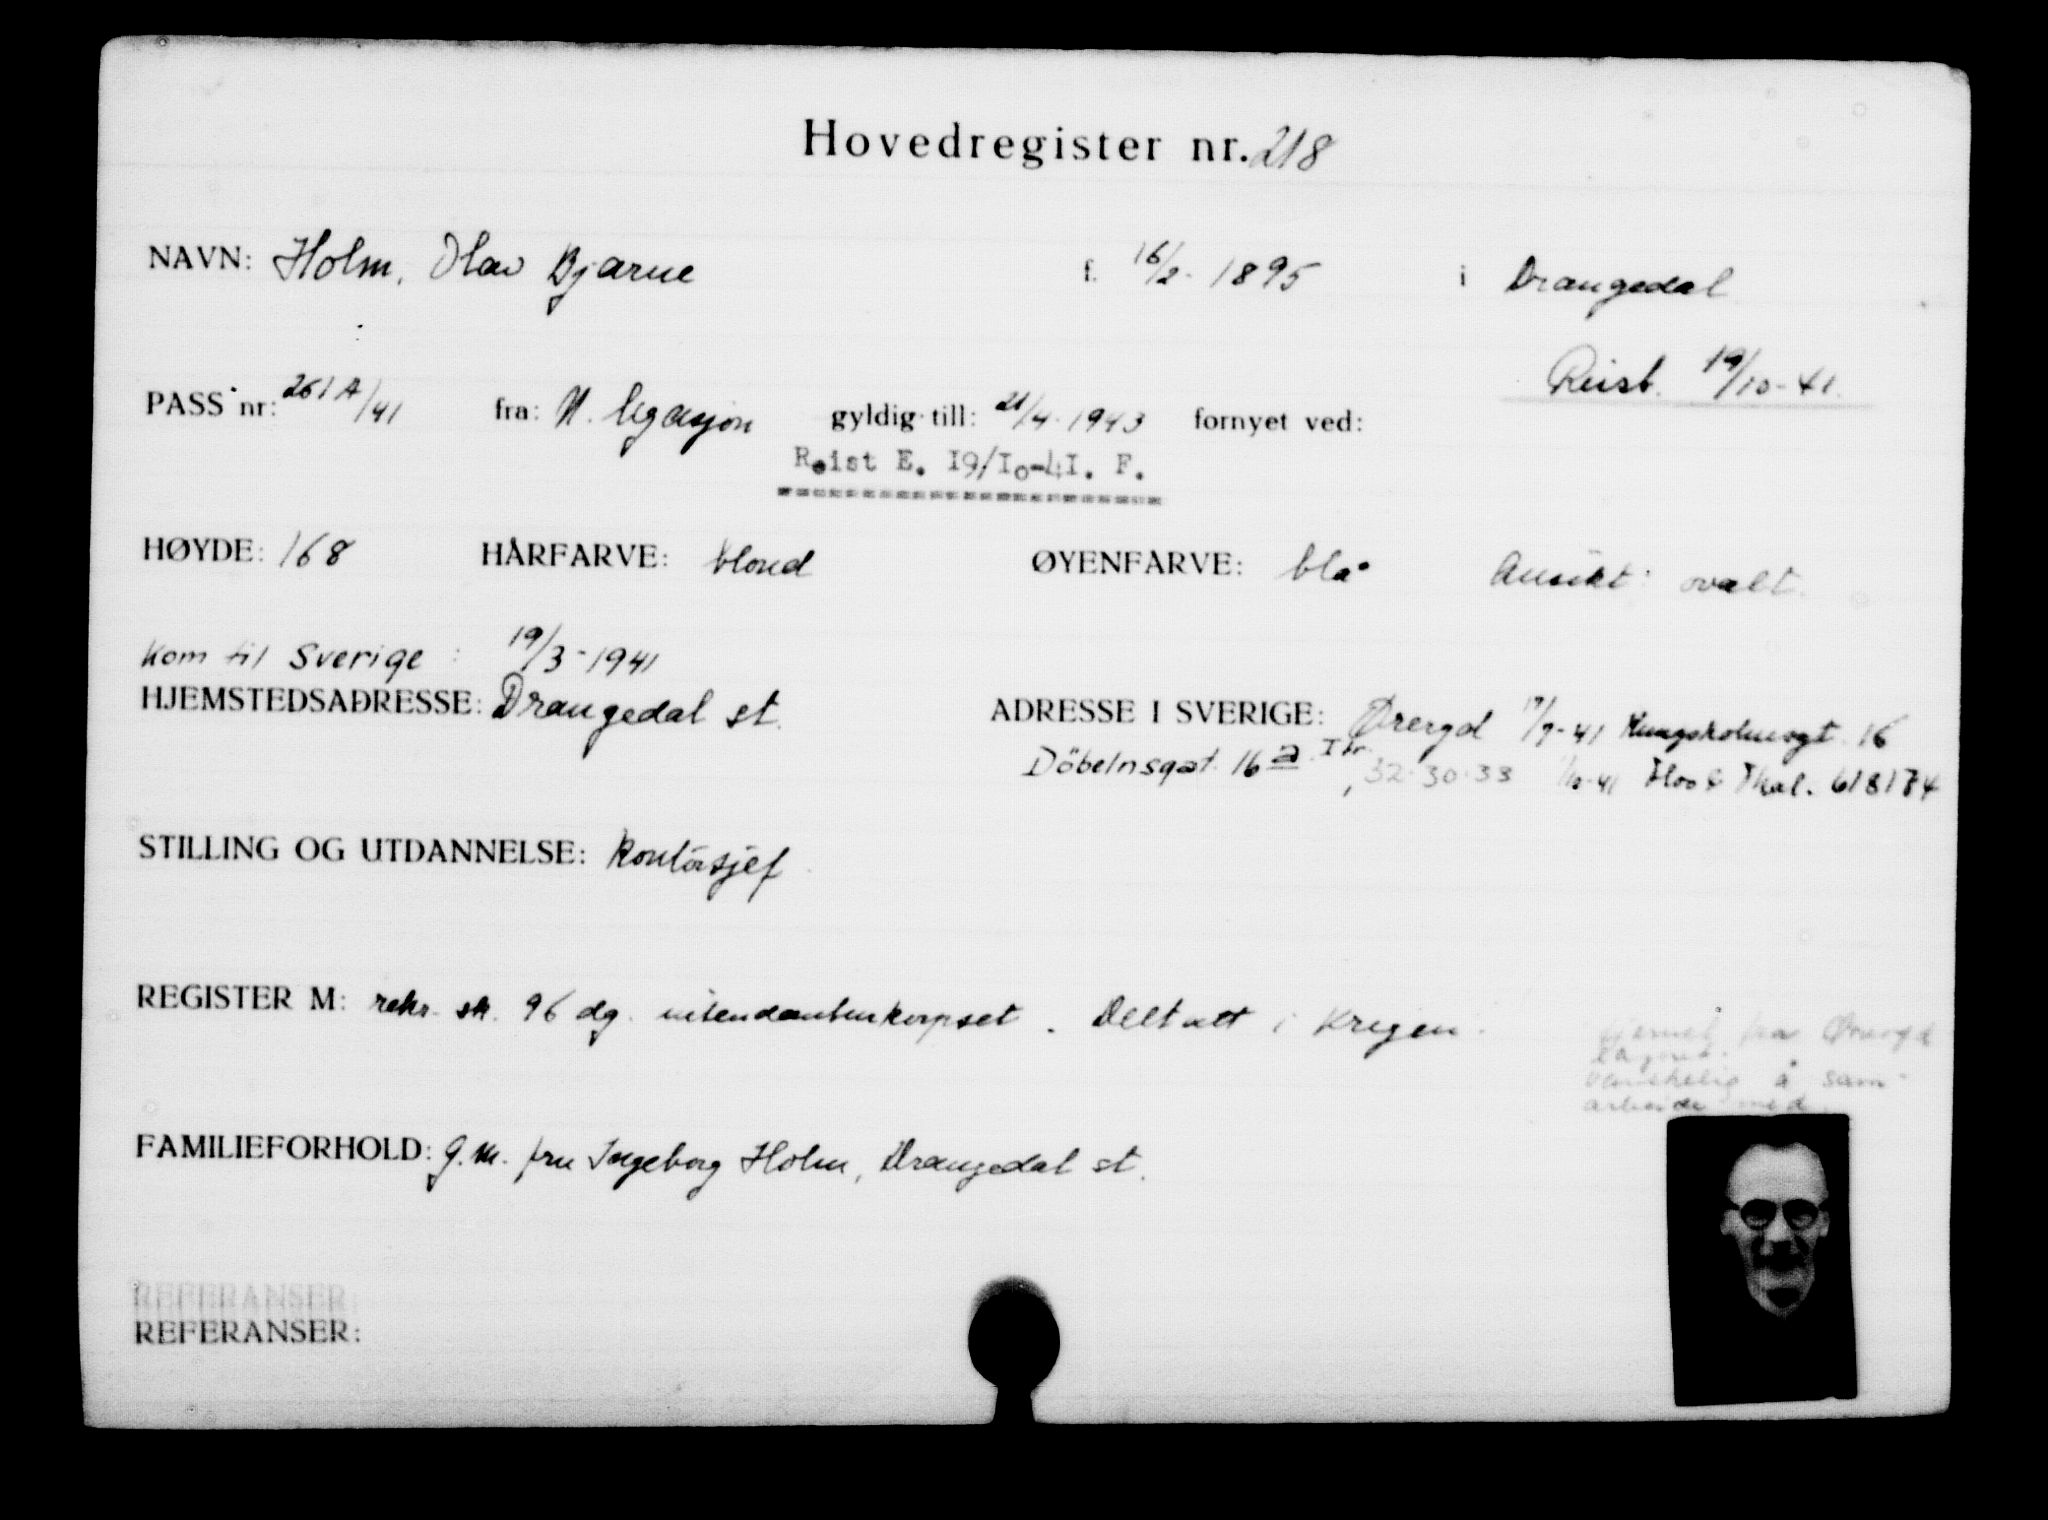 Hovedregister nr. 218
NAVN: Holm, Olav Bjarne f. 16/2-1895 i Drangedal
Reist. 19/10-41.
PASS nr: 261A/41 fra: N. legasjon gyldig till: 21/4-1943 fornyet ved:
Reist E. I9/Io-4I. F.
HØYDE: 168 HÅRFARVE: blond ØYENFARVE: blå Ansikt: ovalt.
Kom til Sverige: 19/3-1941
HJEMSTEDSADRESSE: Drangedal st. ADRESSE I SVERIGE: Øreryd 17/9-41 Kungsholmsgt. 16
Döbelnsgat. 16 a I tr. 32-30-33 /10-41 618174
STILLING OG UTDANNELSE: Kontorsjef.
REGISTER M: rekr. sk. 96 dg. intendanturkorpset. Deltatt i krigen.
Fjernet fra Øreryd
vanskelig å sam-
arbeide med
FAMILIEFORHOLD: g.m. fru Ingeborg Holm, Drangedal st.
REFERANSER:
REFERANSER: